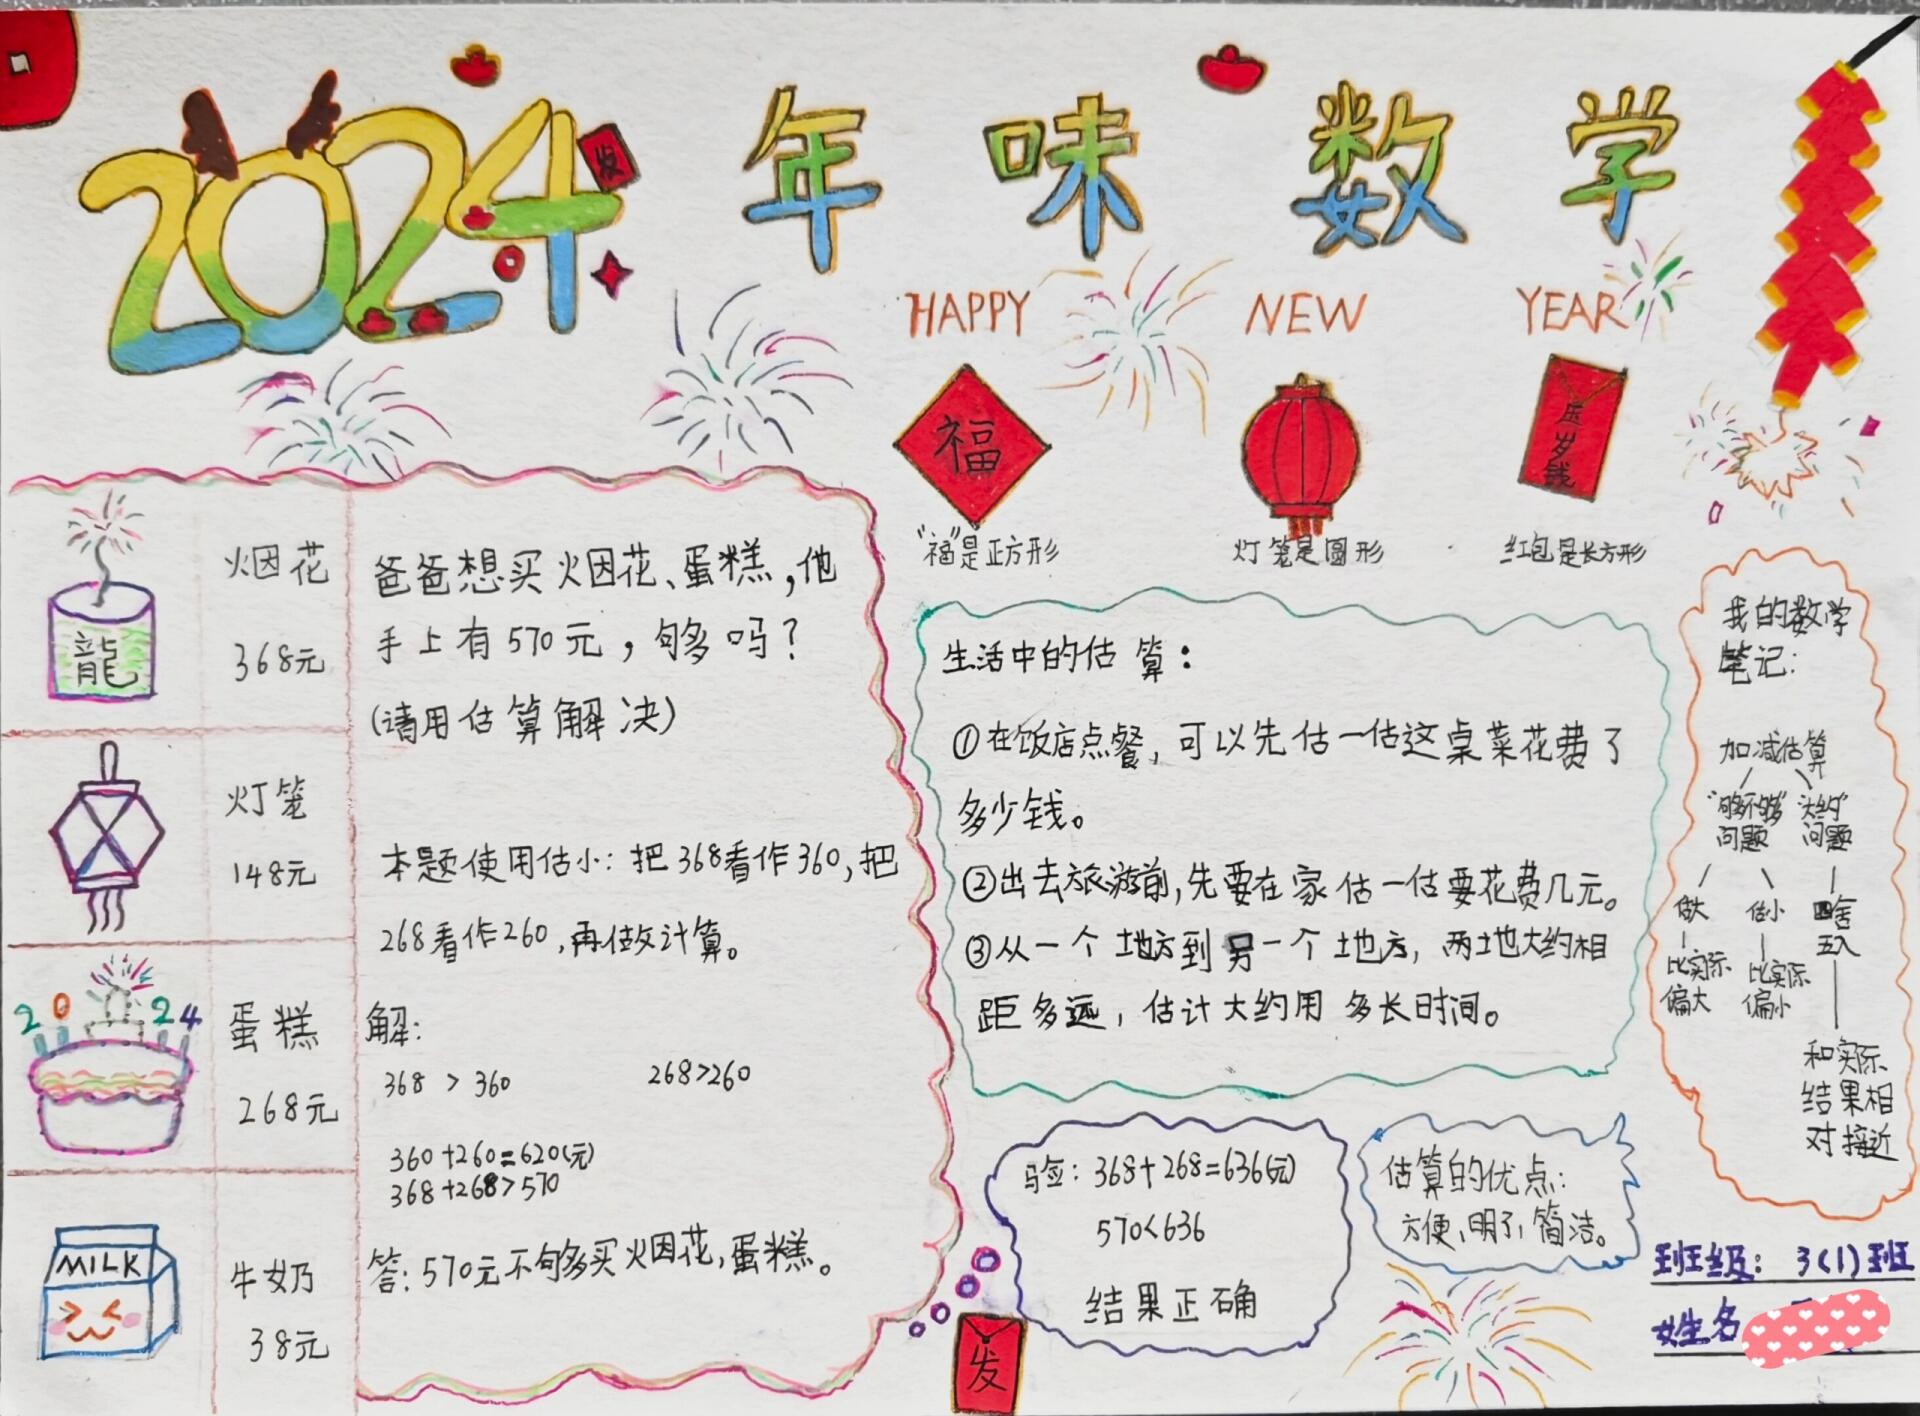 2024 年味数学
发
HAPPY NEW YEAR
福
压岁钱
"福"是正方形
灯笼是圆形
红包是长方形
龍
烟花
368元
灯笼
148元
2024
蛋糕
268元
MILK
牛奶
38元
爸爸想买火因花、蛋糕,他
手上有570元,够多吗?
(请用估算解决)
本题使用估小:把368看作360,把
268看作260,再做计算。
解:
368 > 360
268>260
360+260=620(元)
368+268>570
答:570元不够买火因花,蛋糕。
生活中的估算:
①在饭店点餐,可以先估一估这桌菜花费了
多少钱。
②出去旅游前,先要在家估一估要花费几元。
③从一个地方到另一个地方,两地大约相
距多远,估计大约用多长时间。
我的数学
笔记:
加减估算
"够不够"
问题
"大约"
问题
估大
估小
五入
比实际
偏大
比实际
偏小
和实际
结果相
对接近
验:368+268=636(元)
570<636
结果正确
估算的优点:
方便,明了,简洁。
发
班级:3(1)班
姓名